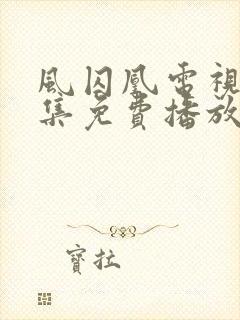 風囚凰電視
集免費播放
寶拉